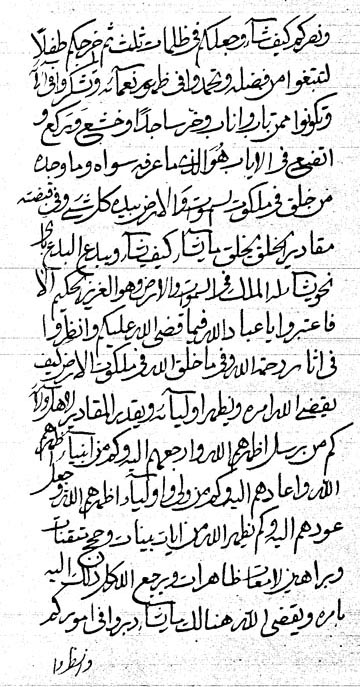 ونقركم كيف تشاء وجعلكم فى ظلمات ثلث ثم اخرجكم طفلا
لتبتغوا من فضله وتحمدوا فى ظهور نعمائه وتشكروا فى
وتكونوا ممن تاب واناب وخر ساجدا وخشع وركع و
اتضع فى الاياب هو الذى ما عرفه سواه وما وحده
من خلق فى ملكوت السموت والارض بيده كل شئ وفى قبضته
مقادير الخلق يخلق ما يشاء كيف يشاء ويبدع البدع
نحو يشاء له الملك فى السموات والارض وهو العزيز الحكيم الا
فاعتبروا يا عباد الله فيما قضى الله عليكم وانظروا
فى اثار رحمة الله وفى ما خلق الله فى ملكوت الارض كيف
يقضى الله امره ويظهر اوليائه ويقدر المقادير لاهل
كم من رسل اظهرهم الله وارجعهم اليه وكم من انبياء اظهرهم
الله واعادهم اليه وكم من ولى واولياء اظهرهم الله وجعل
عودهم اليه وكم يظهر الله من ايات بينات وحجج متقنات
وبراهين لامعات ظاهرات ويرجع الله كل ذلك اليه
بامره ويقضى الله هنالك ما يشاء دبروا فى اموركم
وانظروا